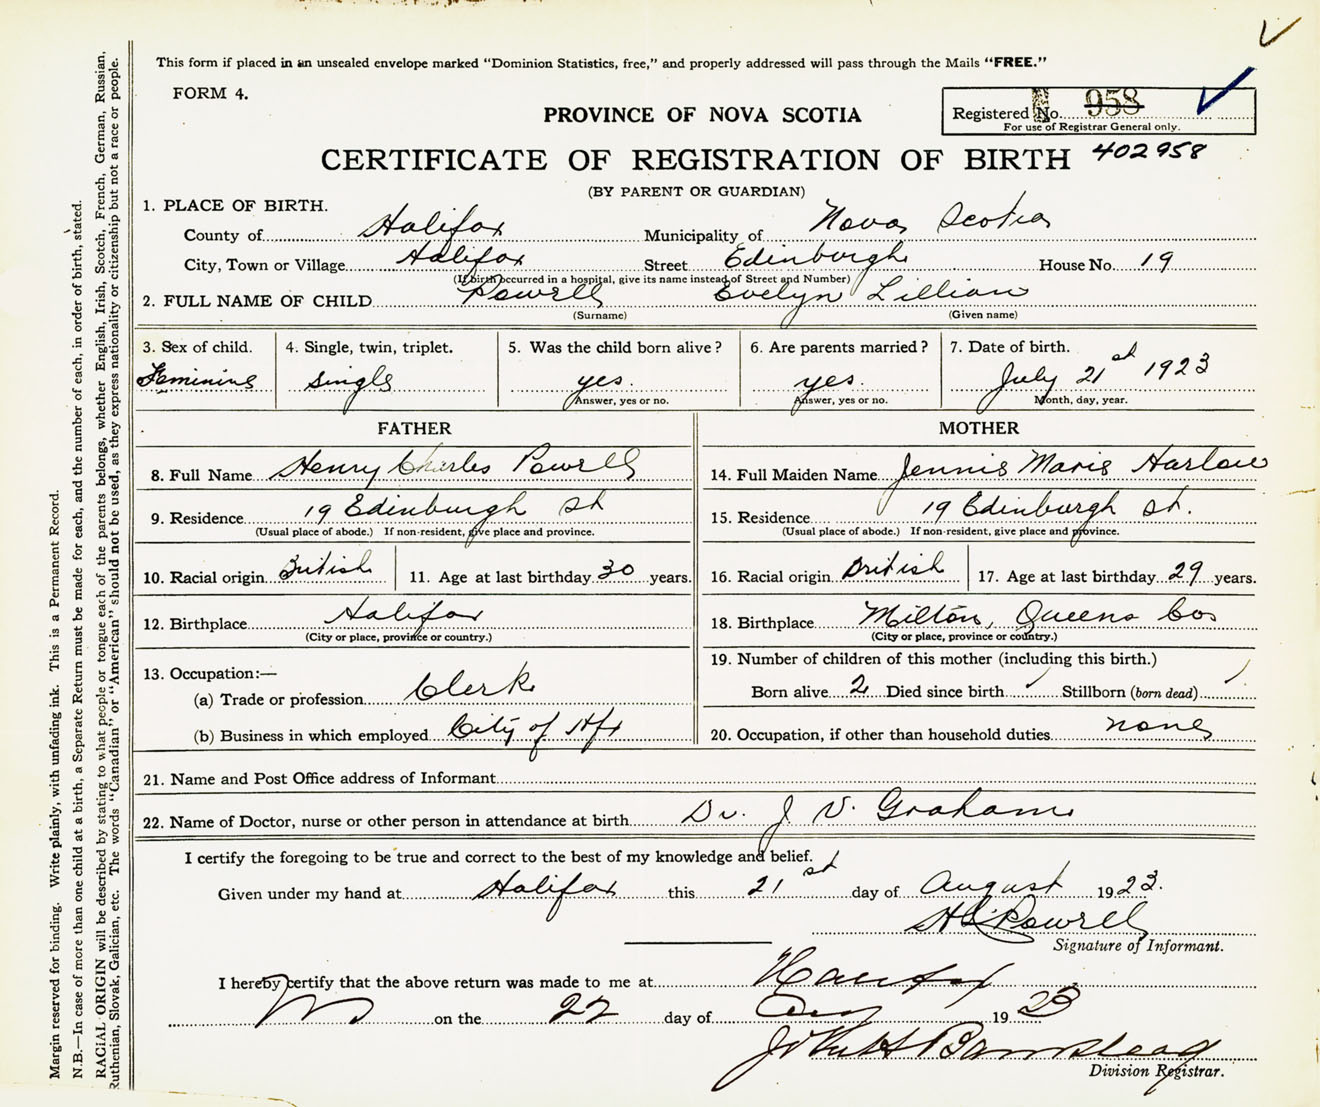 This form if placed in an unsealed envelope marked "Dominion Statistics, free," and properly addressed will pass through the Mails "FREE."
FORM 4.
PROVINCE OF NOVA SCOTIA
Registered No. 958
For use of Registrar General only.
CERTIFICATE OF REGISTRATION OF BIRTH 402958
(BY PARENT OR GUARDIAN)
1. PLACE OF BIRTH.
County of Halifax Municipality of Nova Scotia
City, Town or Village Halifax Street Edinburgh House No. 19
(If birth occurred in a hospital, give its name instead of Street and Number)
2. FULL NAME OF CHILD Powell Evelyn Lillian
(Surname) (Given name)
3. Sex of child. 4. Single, twin, triplet. 5. Was the child born alive? 6. Are parents married? 7. Date of birth.
Feminine single yes. yes. July 21st 1923
Answer, yes or no. Answer, yes or no. Month, day, year.
FATHER MOTHER
8. Full Name Henry Charles Powell 14. Full Maiden Name Jennie Marie Harlow
9. Residence 19 Edinburgh St 15. Residence 19 Edinburgh St.
(Usual place of abode.) If non-resident, give place and province. (Usual place of abode.) If non-resident, give place and province.
10. Racial origin British 11. Age at last birthday 30 years. 16. Racial origin British 17. Age at last birthday 29 years.
12. Birthplace Halifax 18. Birthplace Milton, Queens Co
(City or place, province or country.) (City or place, province or country.)
13. Occupation:— 19. Number of children of this mother (including this birth.)
(a) Trade or profession Clerk Born alive 2 Died since birth Stillborn (born dead)
(b) Business in which employed City of Hfx 20. Occupation, if other than household duties none
21. Name and Post Office address of Informant
22. Name of Doctor, nurse or other person in attendance at birth Dr. J V. Graham
I certify the foregoing to be true and correct to the best of my knowledge and belief.
Given under my hand at Halifax this 21st day of August 1923.
H C Powell
Signature of Informant.
I hereby certify that the above return was made to me at Halifax
NS on the 22 day of Aug 1923
Division Registrar.
Margin reserved for binding. Write plainly, with unfading ink. This is a Permanent Record.
N.B.—In case of more than one child at a birth, a Separate Return must be made for each, and the number of each, in order of birth, stated.
RACIAL ORIGIN will be described by stating to what people or tongue each of the parents belongs, whether English, Irish, Scotch, French, German, Russian,
Ruthenian, Slovak, Galician, etc. The words "Canadian" or "American" should not be used, as they express nationality or citizenship but not a race or people.